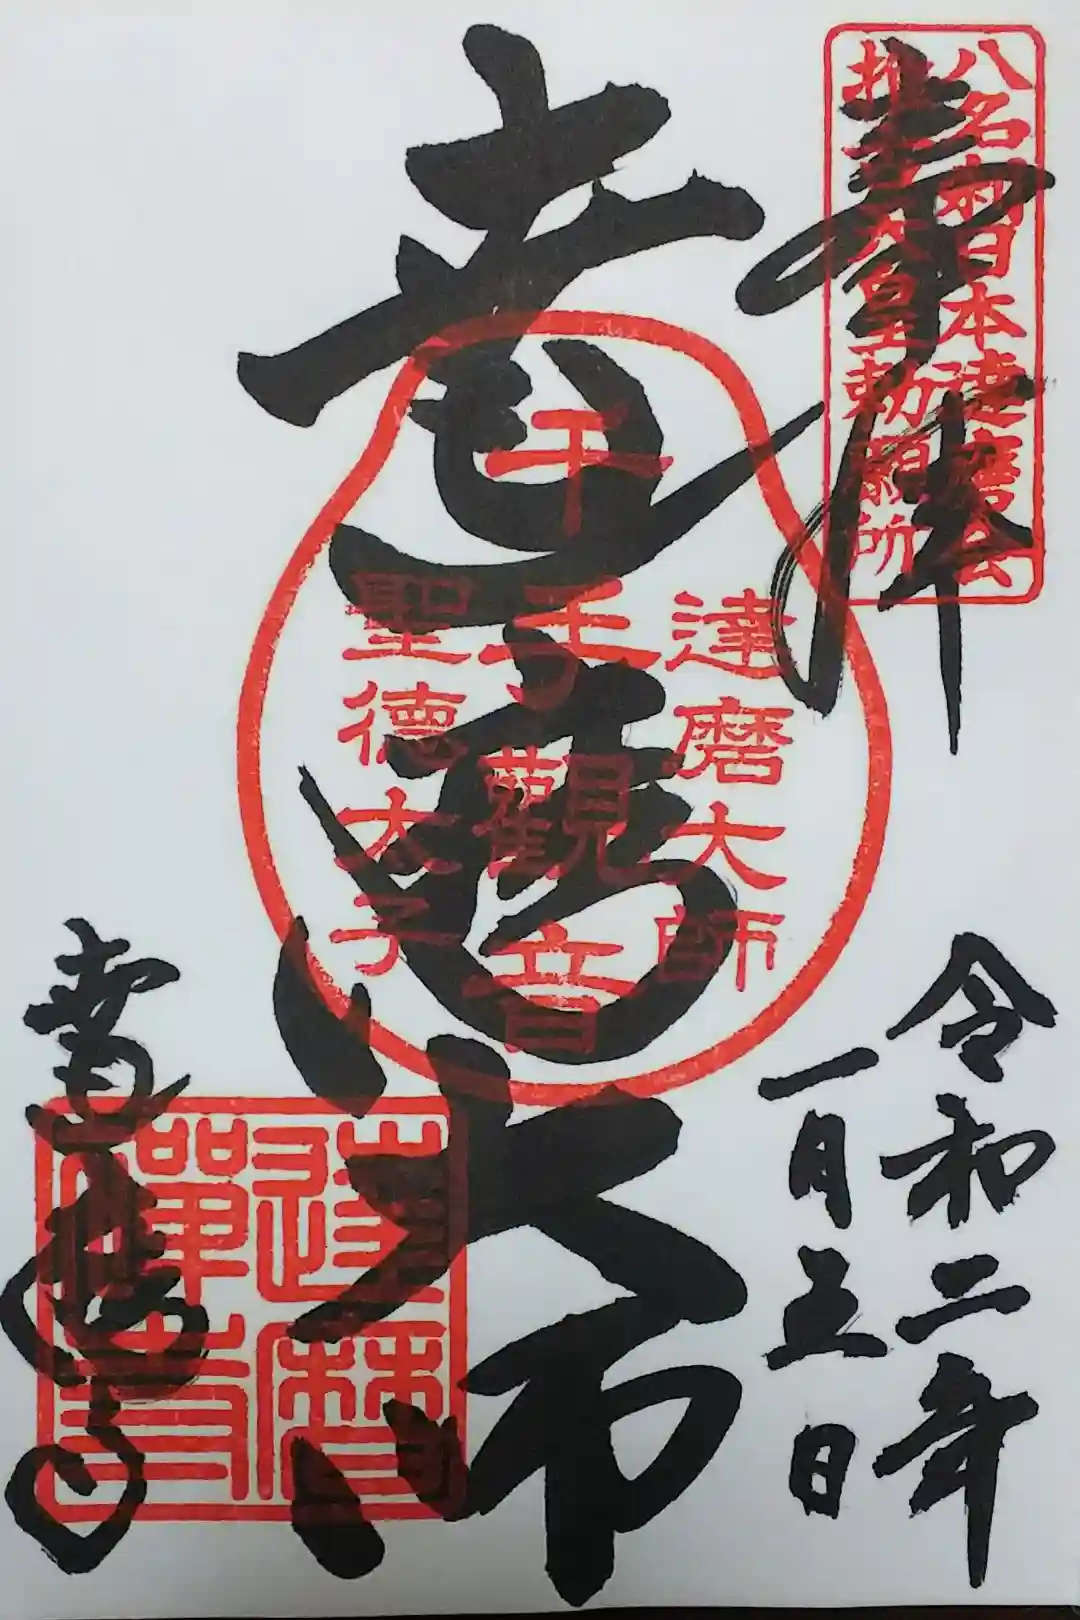 奉拝
八名刹日本達磨会
推古天皇勅願所
達磨大師
達磨大師
千手觀音
聖徳太子
令和二年
一月五日
達磨禪寺